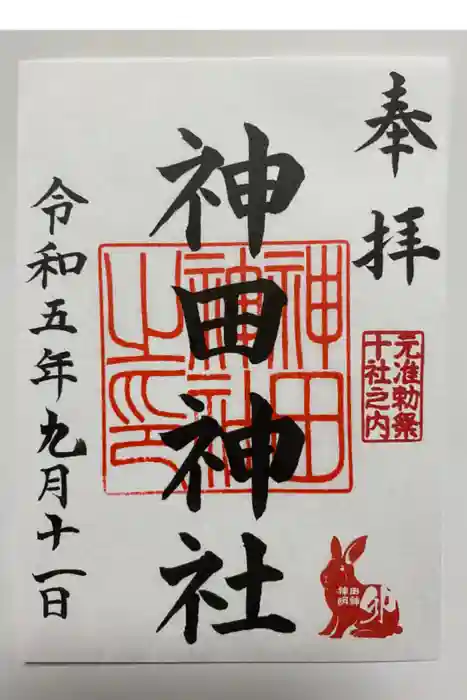 奉拝
元准勅祭
十社之内
神田神社
神田
神社
之印
令和五年九月十一日
神田
明神
卯